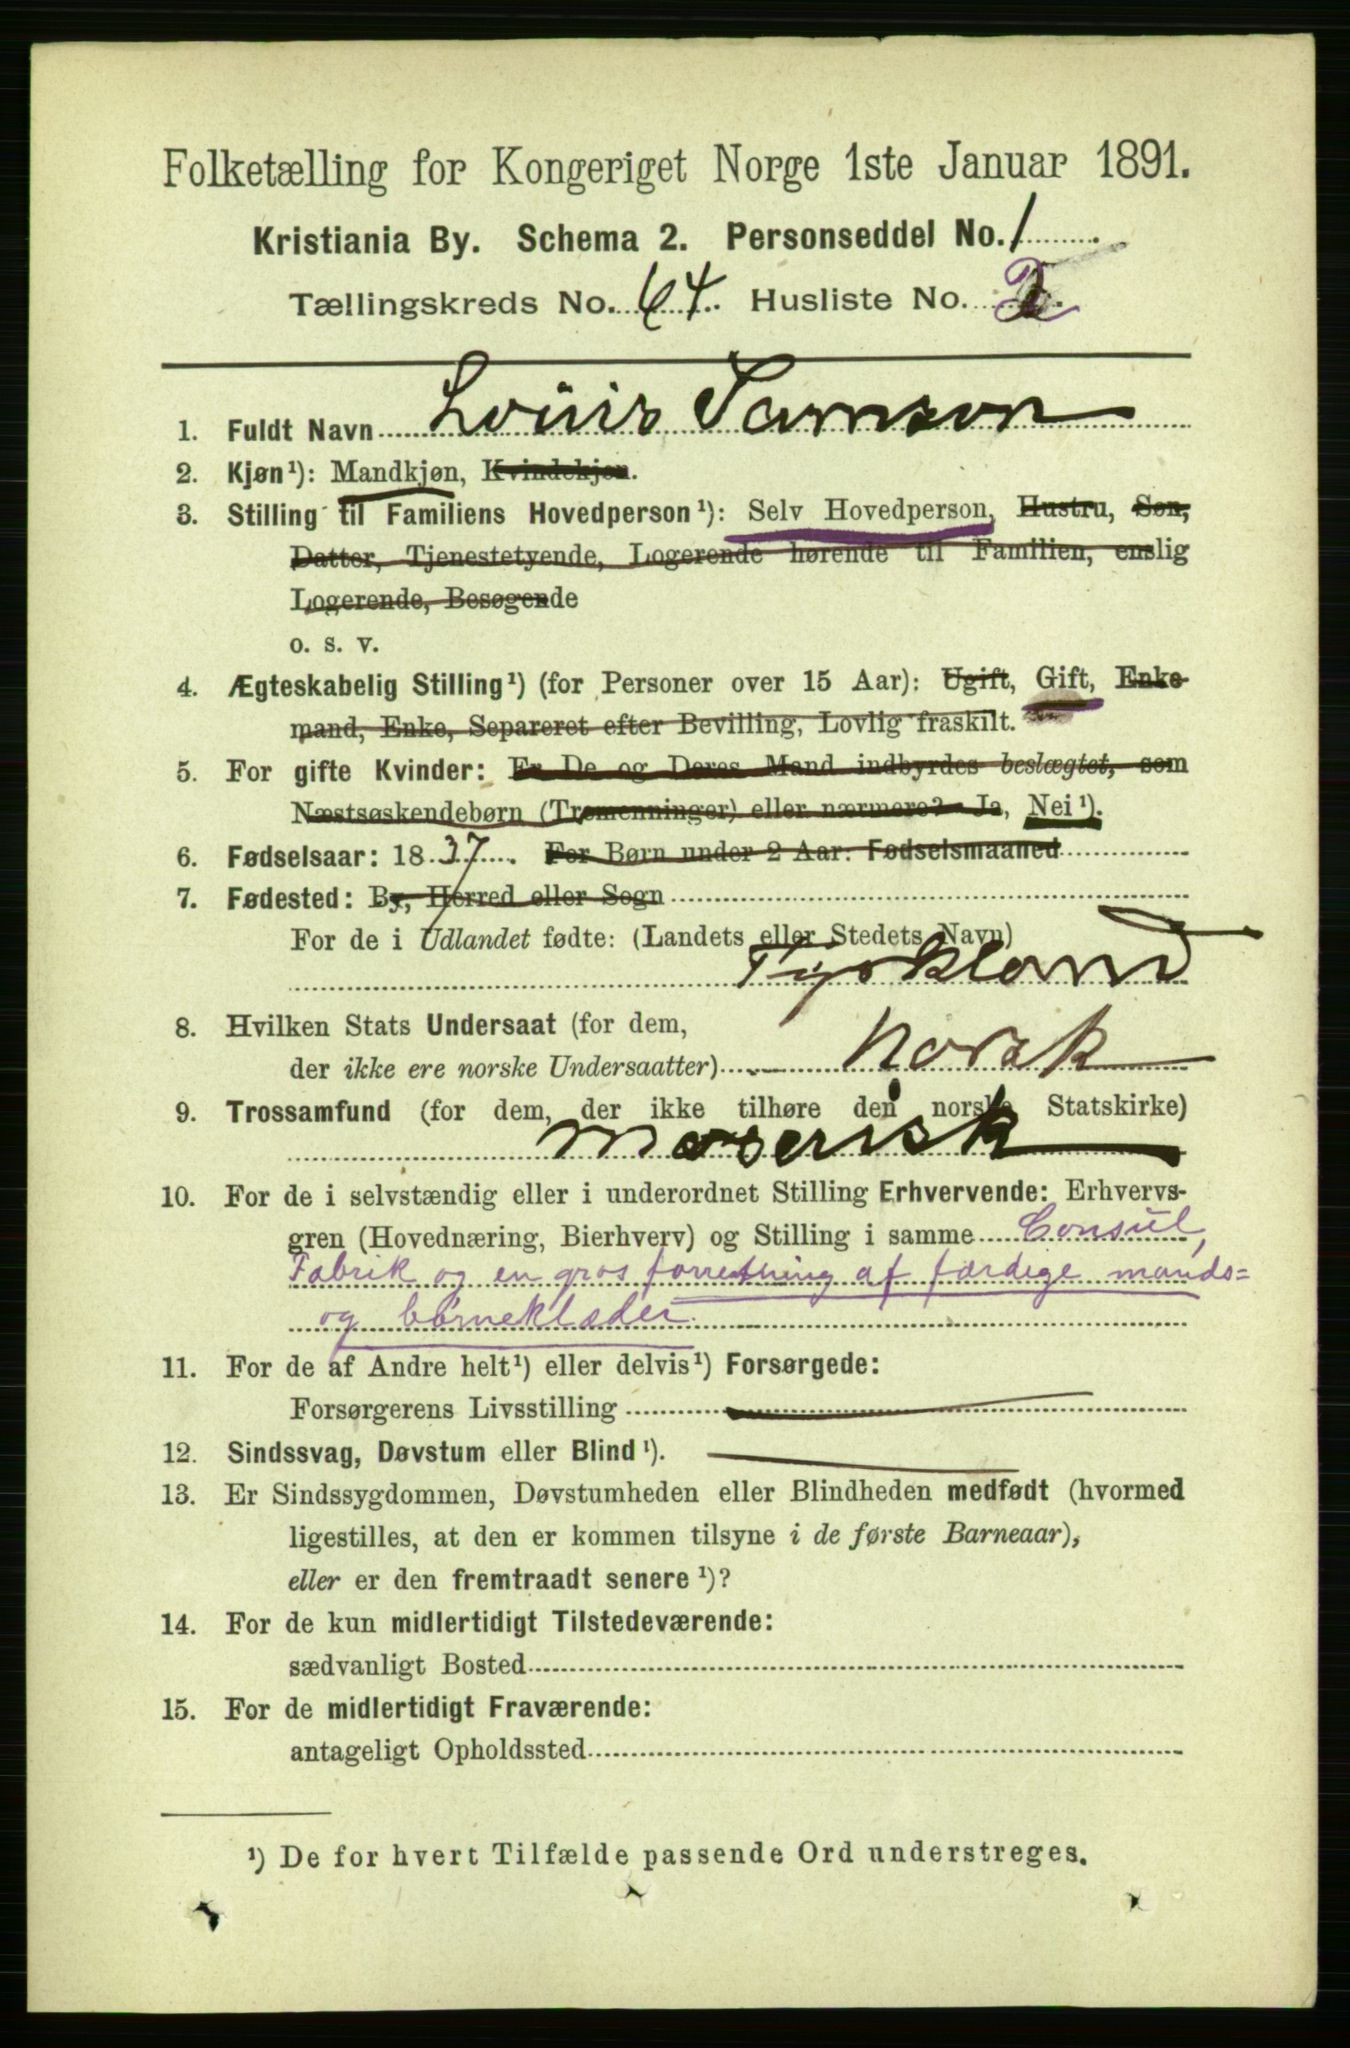 Folketælling for Kongeriget Norge 1ste Januar 1891.
Kristiania By. Schema 2. Personseddel No. 1
Tællingskreds No. 64. Husliste No. 2.
1. Fuldt Navn Louis Samson
2. Kjøn¹): Mandkjøn, Kvindekjøn.
3. Stilling til Familiens Hovedperson¹): Selv Hovedperson, Hustru, Søn,
Datter, Tjenestetyende, Logerende hørende til Familien, enslig
Logerende, Besøgende
o. s. v.
4. Ægteskabelig Stilling¹) (for Personer over 15 Aar): Ugift, Gift, Enke-
mand, Enke, Separeret efter Bevilling, Lovlig fraskilt.
5. For gifte Kvinder: Er De og Deres Mand indbyrdes beslægtet, som
Næstsøskendebørn (Tremenninger) eller nærmere? - Ja, Nei¹).
6. Fødselsaar: 1837. For Børn under 2 Aar: Fødselsmaaned
7. Fødested: By, Herred eller Sogn
For de i Udlandet fødte: (Landets eller Stedets Navn)
Tyskland
8. Hvilken Stats Undersaat (for dem,
der ikke ere norske Undersaatter) Norsk
9. Trossamfund (for dem, der ikke tilhøre den norske Statskirke)
Moseisk
10. For de i selvstændig eller i underordnet Stilling Erhvervende: Erhvervs-
gren (Hovednæring, Bierhverv) og Stilling i samme Consul,
Fabrik og en gros forretning af færdige mands=
og børneklæder.
11. For de af Andre helt¹) eller delvis¹) Forsørgede:
Forsørgerens Livsstilling
12. Sindssvag, Døvstum eller Blind¹).
13. Er Sindssygdommen, Døvstumheden eller Blindheden medfødt (hvormed
ligestilles, at den er kommen tilsyne i de første Barneaar),
eller er den fremtraadt senere¹)?
14. For de kun midlertidigt Tilstedeværende:
sædvanligt Bosted
15. For de midlertidigt Fraværende:
antageligt Opholdssted
¹) De for hvert Tilfælde passende Ord understreges.